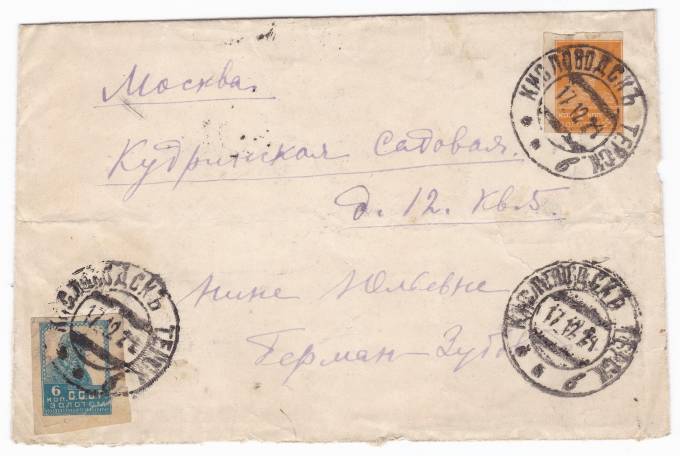 Москва.
КИСЛОВОДСКЪ ТЕРСК.
17.12.24
б
Кудринская садовая.
д. 12. кв. 5.
КИСЛОВОДСКЪ ТЕРСК.
17.12.24
Нине Юльевне
КИСЛОВОДСКЪ ТЕРСК.
17.12.24.
б
Герман-
6
КОП. С.С.С.Р.
ЗОЛОТОМ